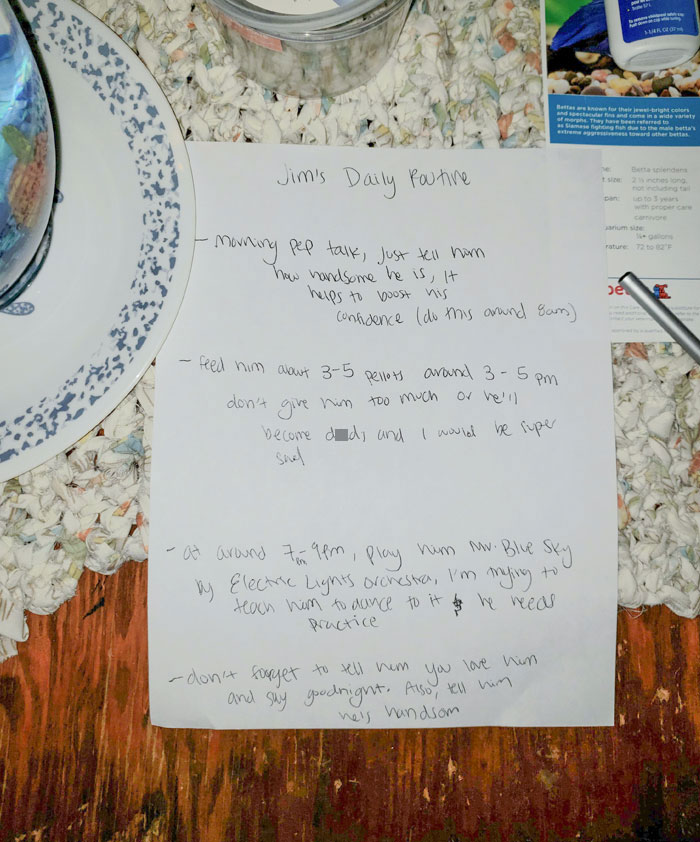 To remove childproof safety cap
Push down on cap while turning.
1-1/4 FL OZ (37 mL)
Bettas are known for their jewel-bright colors
and spectacular fins and come in a wide variety
of morphs. They have been referred to
as Siamese fighting fish due to the male betta's
extreme aggressiveness toward other bettas.
Betta splendens
size: 2 ¼ inches long,
not including tail
span: up to 3 years
with proper care
carnivore
size:
gallons
rature: 72 to 82°F
Jim's Daily Routine
- Morning pep talk, just tell him
how handsome he is, It
helps to boost his
confidence (do this around 8am)
- feed him about 3-5 pellots around 3-5 pm
don't give him too much or he'll
become d d, and I would be super
sad
- at around 7pm-9pm, play him Mr. Blue Sky
by Electric Lights Orchestra, I'm trying to
teach him to dance to it & he needs
practice
- don't forget to tell him you love him
and say goodnight. Also, tell him
he's handsom